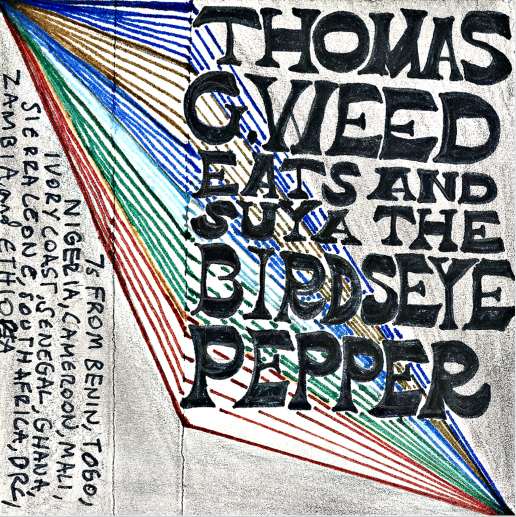 THOMAS
G. WEED
EATS AND
SUYA THE
BIRDSEYE
PEPPER
7s FROM BENIN, TOGO,
NIGERIA, CAMEROON, MALI,
IVORY COAST, SENEGAL, GHANA,
SIERRA LEONE, SOUTH AFRICA, DRC,
ZAMBIA AND ETHIOPIA